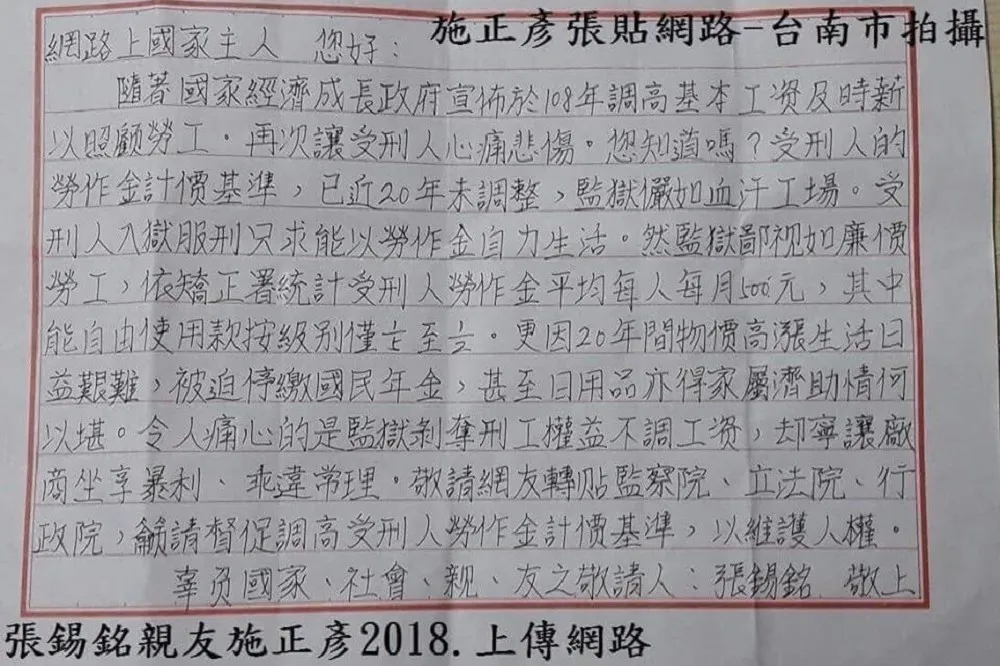 施正彥張貼網路-台南市拍攝
網路上國家主人 您好:
隨著國家經濟成長政府宣佈於108年調高基本工资及時薪
以照顧勞工。再次讓受刑人心痛悲傷。您知道嗎?受刑人的
勞作金計價基準,已近20年未調整,監獄儼如血汗工場。受
刑人入獄服刑只求能以勞作金自力生活。然監獄鄙視如廉價
勞工,依矯正署統計受刑人勞作金平均每人每月500元,其中
能自由使用款按級別僅 至 。更因20年間物價高漲生活日
益艱難,被迫停繳國民年金,甚至日用品亦得家屬濟助情何
以堪。令人痛心的是監獄剝奪刑工權益不調工资,却寧讓廠
商坐享暴利、乖違常理。敬請網友轉貼監察院、立法院、行
政院,籲請督促調高受刑人勞作金計價基準,以維護人權。
辜負國家、社會、親、友之敬請人:張錫銘 敬上
張錫銘親友施正彥2018.上傳網路